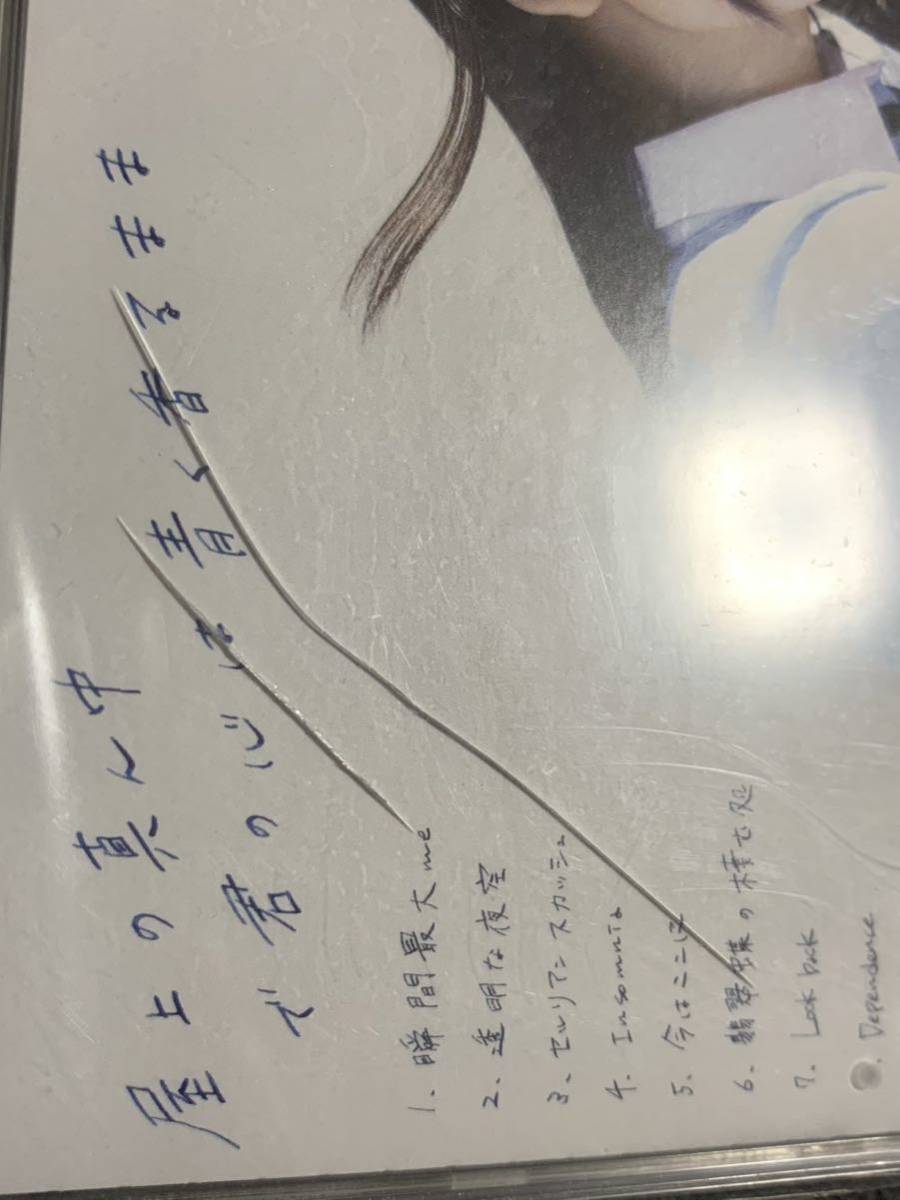 屋上の真ん中
で君の心は青く香るまま
1. 瞬間最大me
2. 透明な夜空
3、セルリアンスカッシュ
4. Insomnia
5. 今はここに
6. 翡翠蝶の棲む処
7. Look back
Dependence